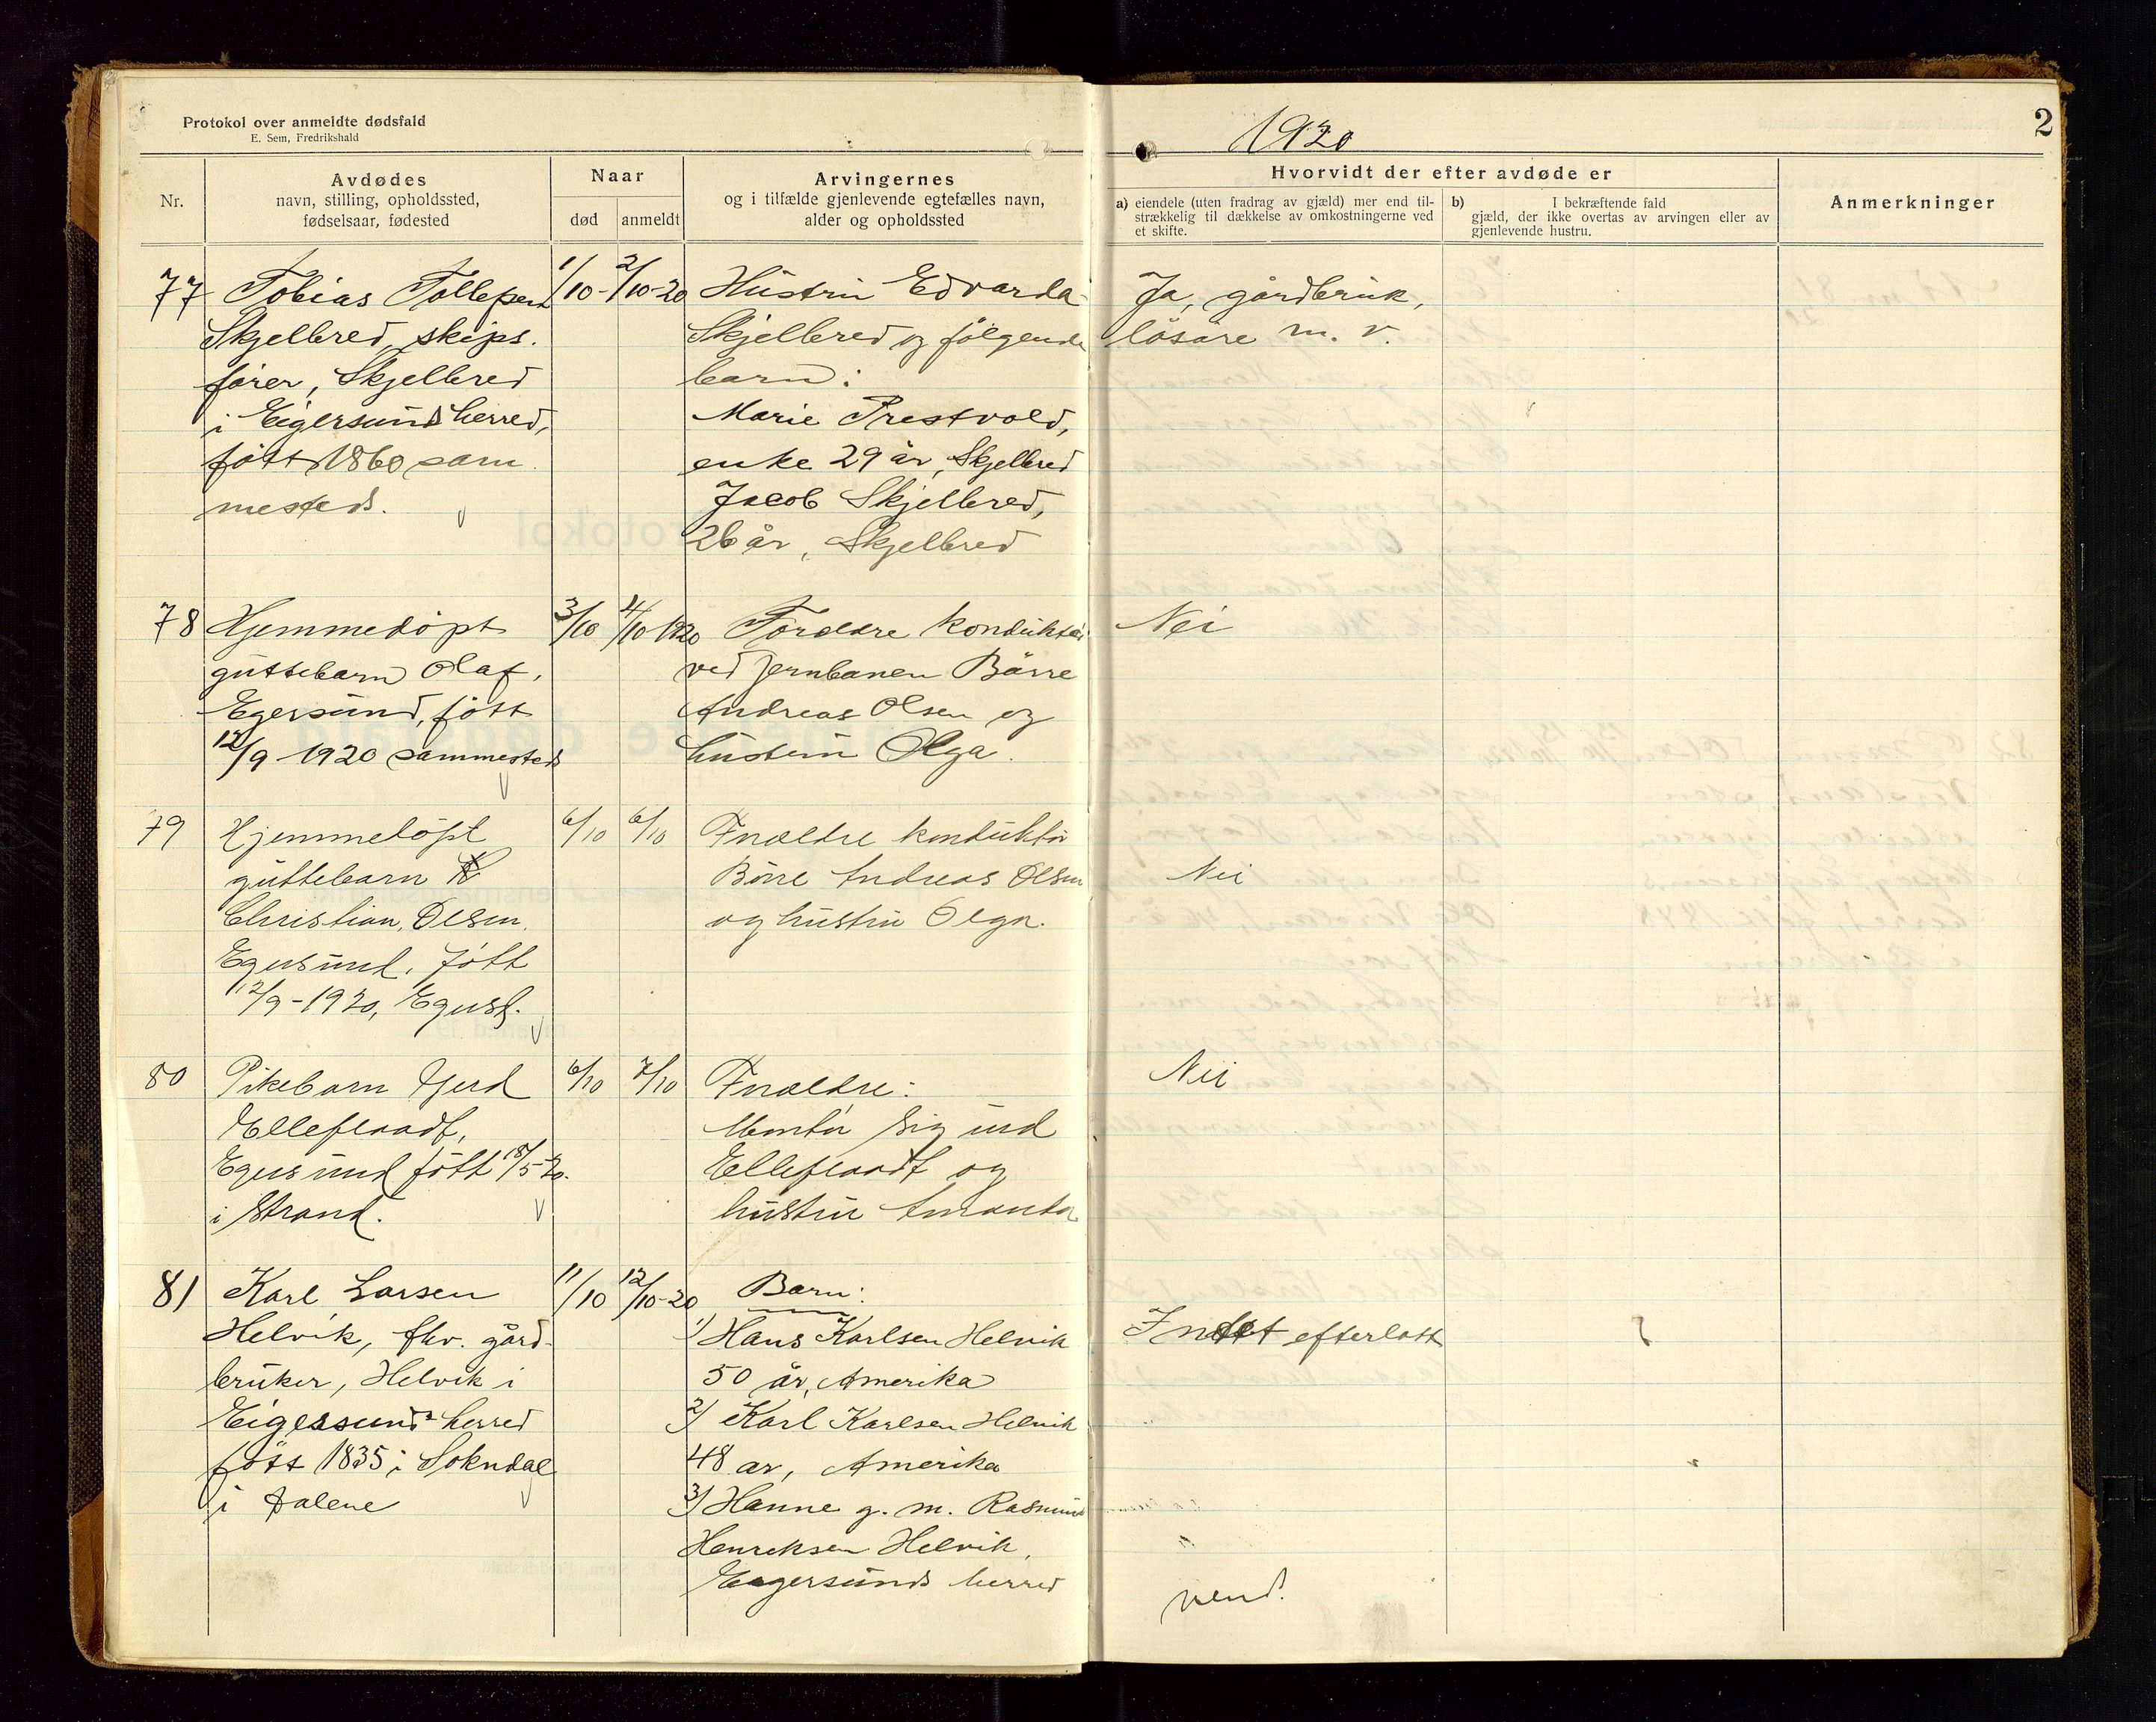 Protokol over anmeldte dødsfald
E. Sem, Fredrikshald
1920
2
Nr.
Avdødes
navn, stilling, opholdssted,
fødselsaar, fødested
Naar
død
anmeldt
Arvingernes
og i tilfælde gjenlevende egtefælles navn,
alder og opholdssted
Hvorvidt der efter avdøde er
a) eiendele (uten fradrag av gjæld) mer end til-
strækkelig til dækkelse av omkostningerne ved
et skifte.
b) I bekræftende fald
gjæld, der ikke overtas av arvingen eller av
gjenlevende hustru.
Anmerkninger
77
Tobias Tollefsen
Skjelbred, skips-
fører, Skjelbred
i Eigersunds herred,
født 1860 sam
mesteds.
1/10-
2/10-20
Hustru Edvarda
Skjelbred og følgende
barn:
Marie Prestvold,
enke 29 år, Skjelbred
Jacob Skjelbred,
26 år, Skjelbred
Ja, gårdbruk,
løsøre m. v.
78
Hjemmedøpt
guttebarn Olaf,
Egersund, født
12/9-1920 sammesteds
3/10
4/10-1920
Foreldre konduktør
ved jernbanen Børre
Andreas Olsen og
hustru Olga.
Nei
79
Hjemmedøpt
guttebarn
Christian, Olsen,
Egersund, født
12/9-1920, Egersd.
6/10
6/10
Forældre konduktør
Børre Andreas Olsen
og hustru Olga.
Nei
80
Pikebarn Gerd
Elleflaadt,
Egersund født 18/5-20.
i Strand.
6/10
7/10
Forældre:
Montør Sigurd
Elleflaadt og
hustru Amanda
Nei
81
Karl Larsen
Helvik, fhv. gård-
bruker, Helvik i
Eigersunds herred
født 1835 i Sokndal
i Dalene
11/10
12/10-20
Barn:
1) Hans Karlsen Helvik
50 år, Amerika
2) Karl Karlsen Helvik
48 år, Amerika
3) Hanne g. m. Rasmus
Henriksen Helvik,
Eigersunds herred
Intet efterlatt
vend!